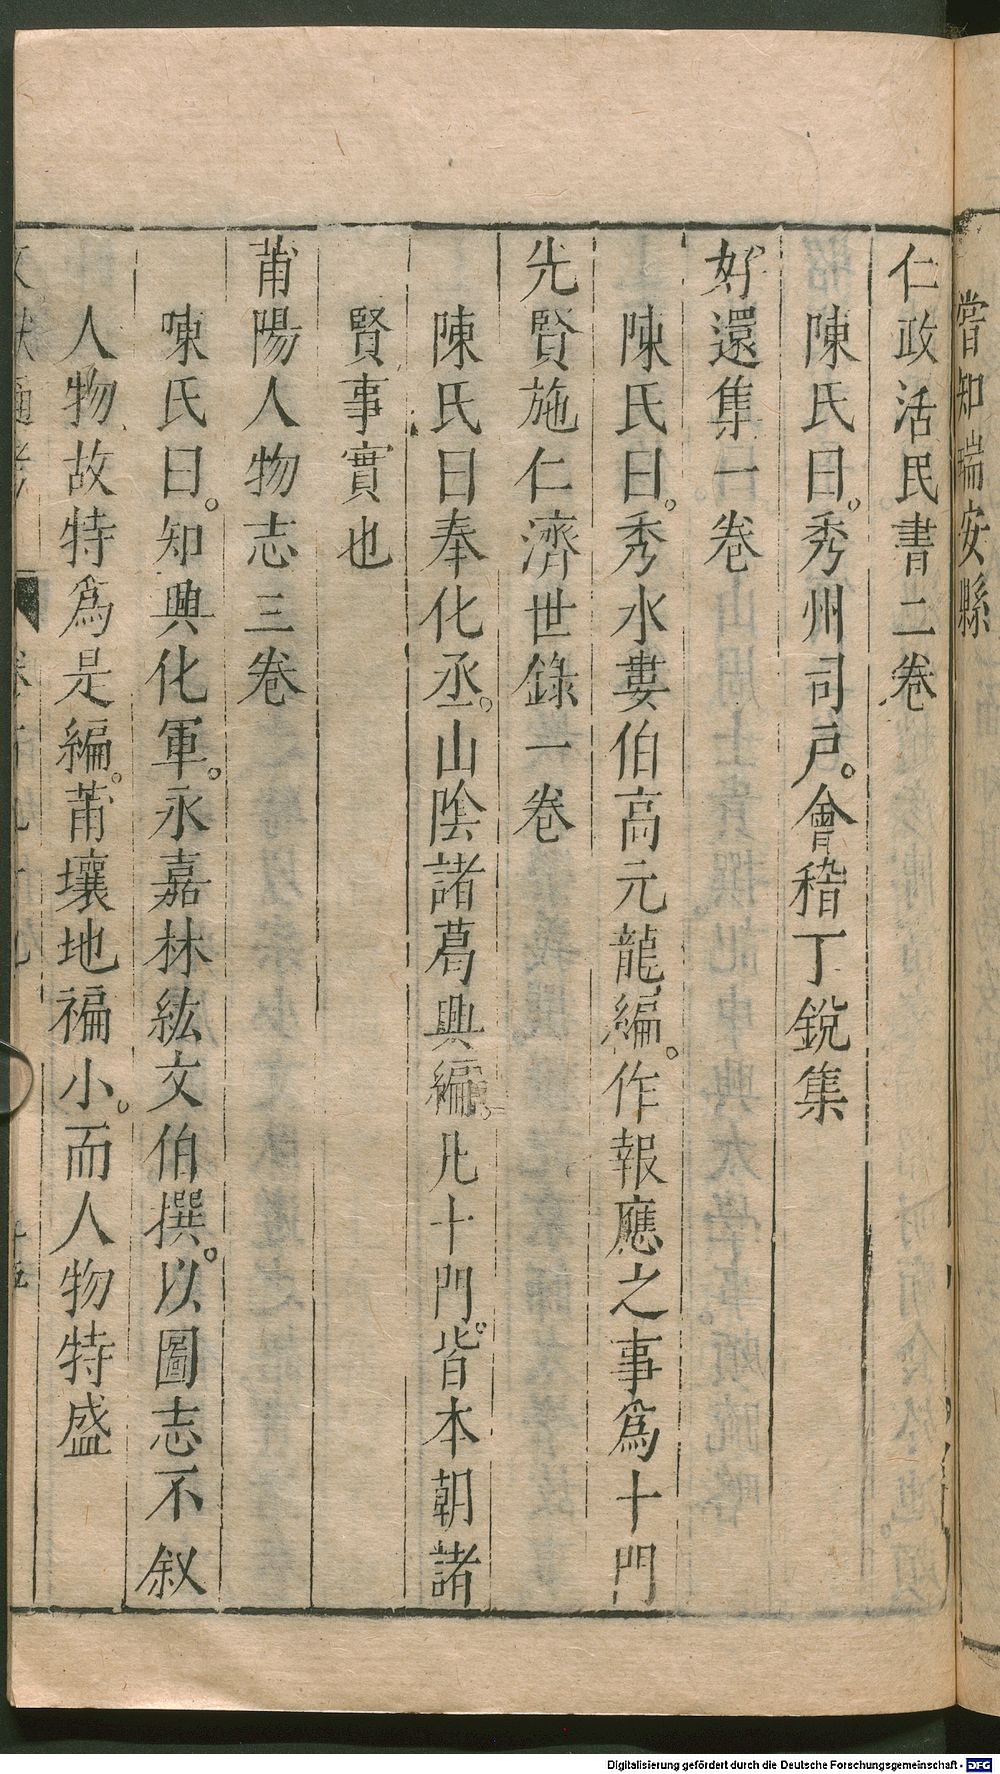 嘗知瑞安縣
仁政活民書二卷
陳氏曰。秀州司戶。會稽丁銳集
好還集一卷
陳氏曰。秀水婁伯高元龍編。作報應之事爲十門
先賢施仁濟世錄一卷
陳氏曰奉化丞。山陰諸葛興編。凡十門。皆本朝諸
賢事實也
莆陽人物志三卷
陳氏曰。知興化軍。永嘉林紘文伯撰。以圖志不叙
人物故特爲是編。莆壤地褊小。而人物特盛
Digitalisierung gefördert durch die Deutsche Forschungsgemeinschaft - DFG